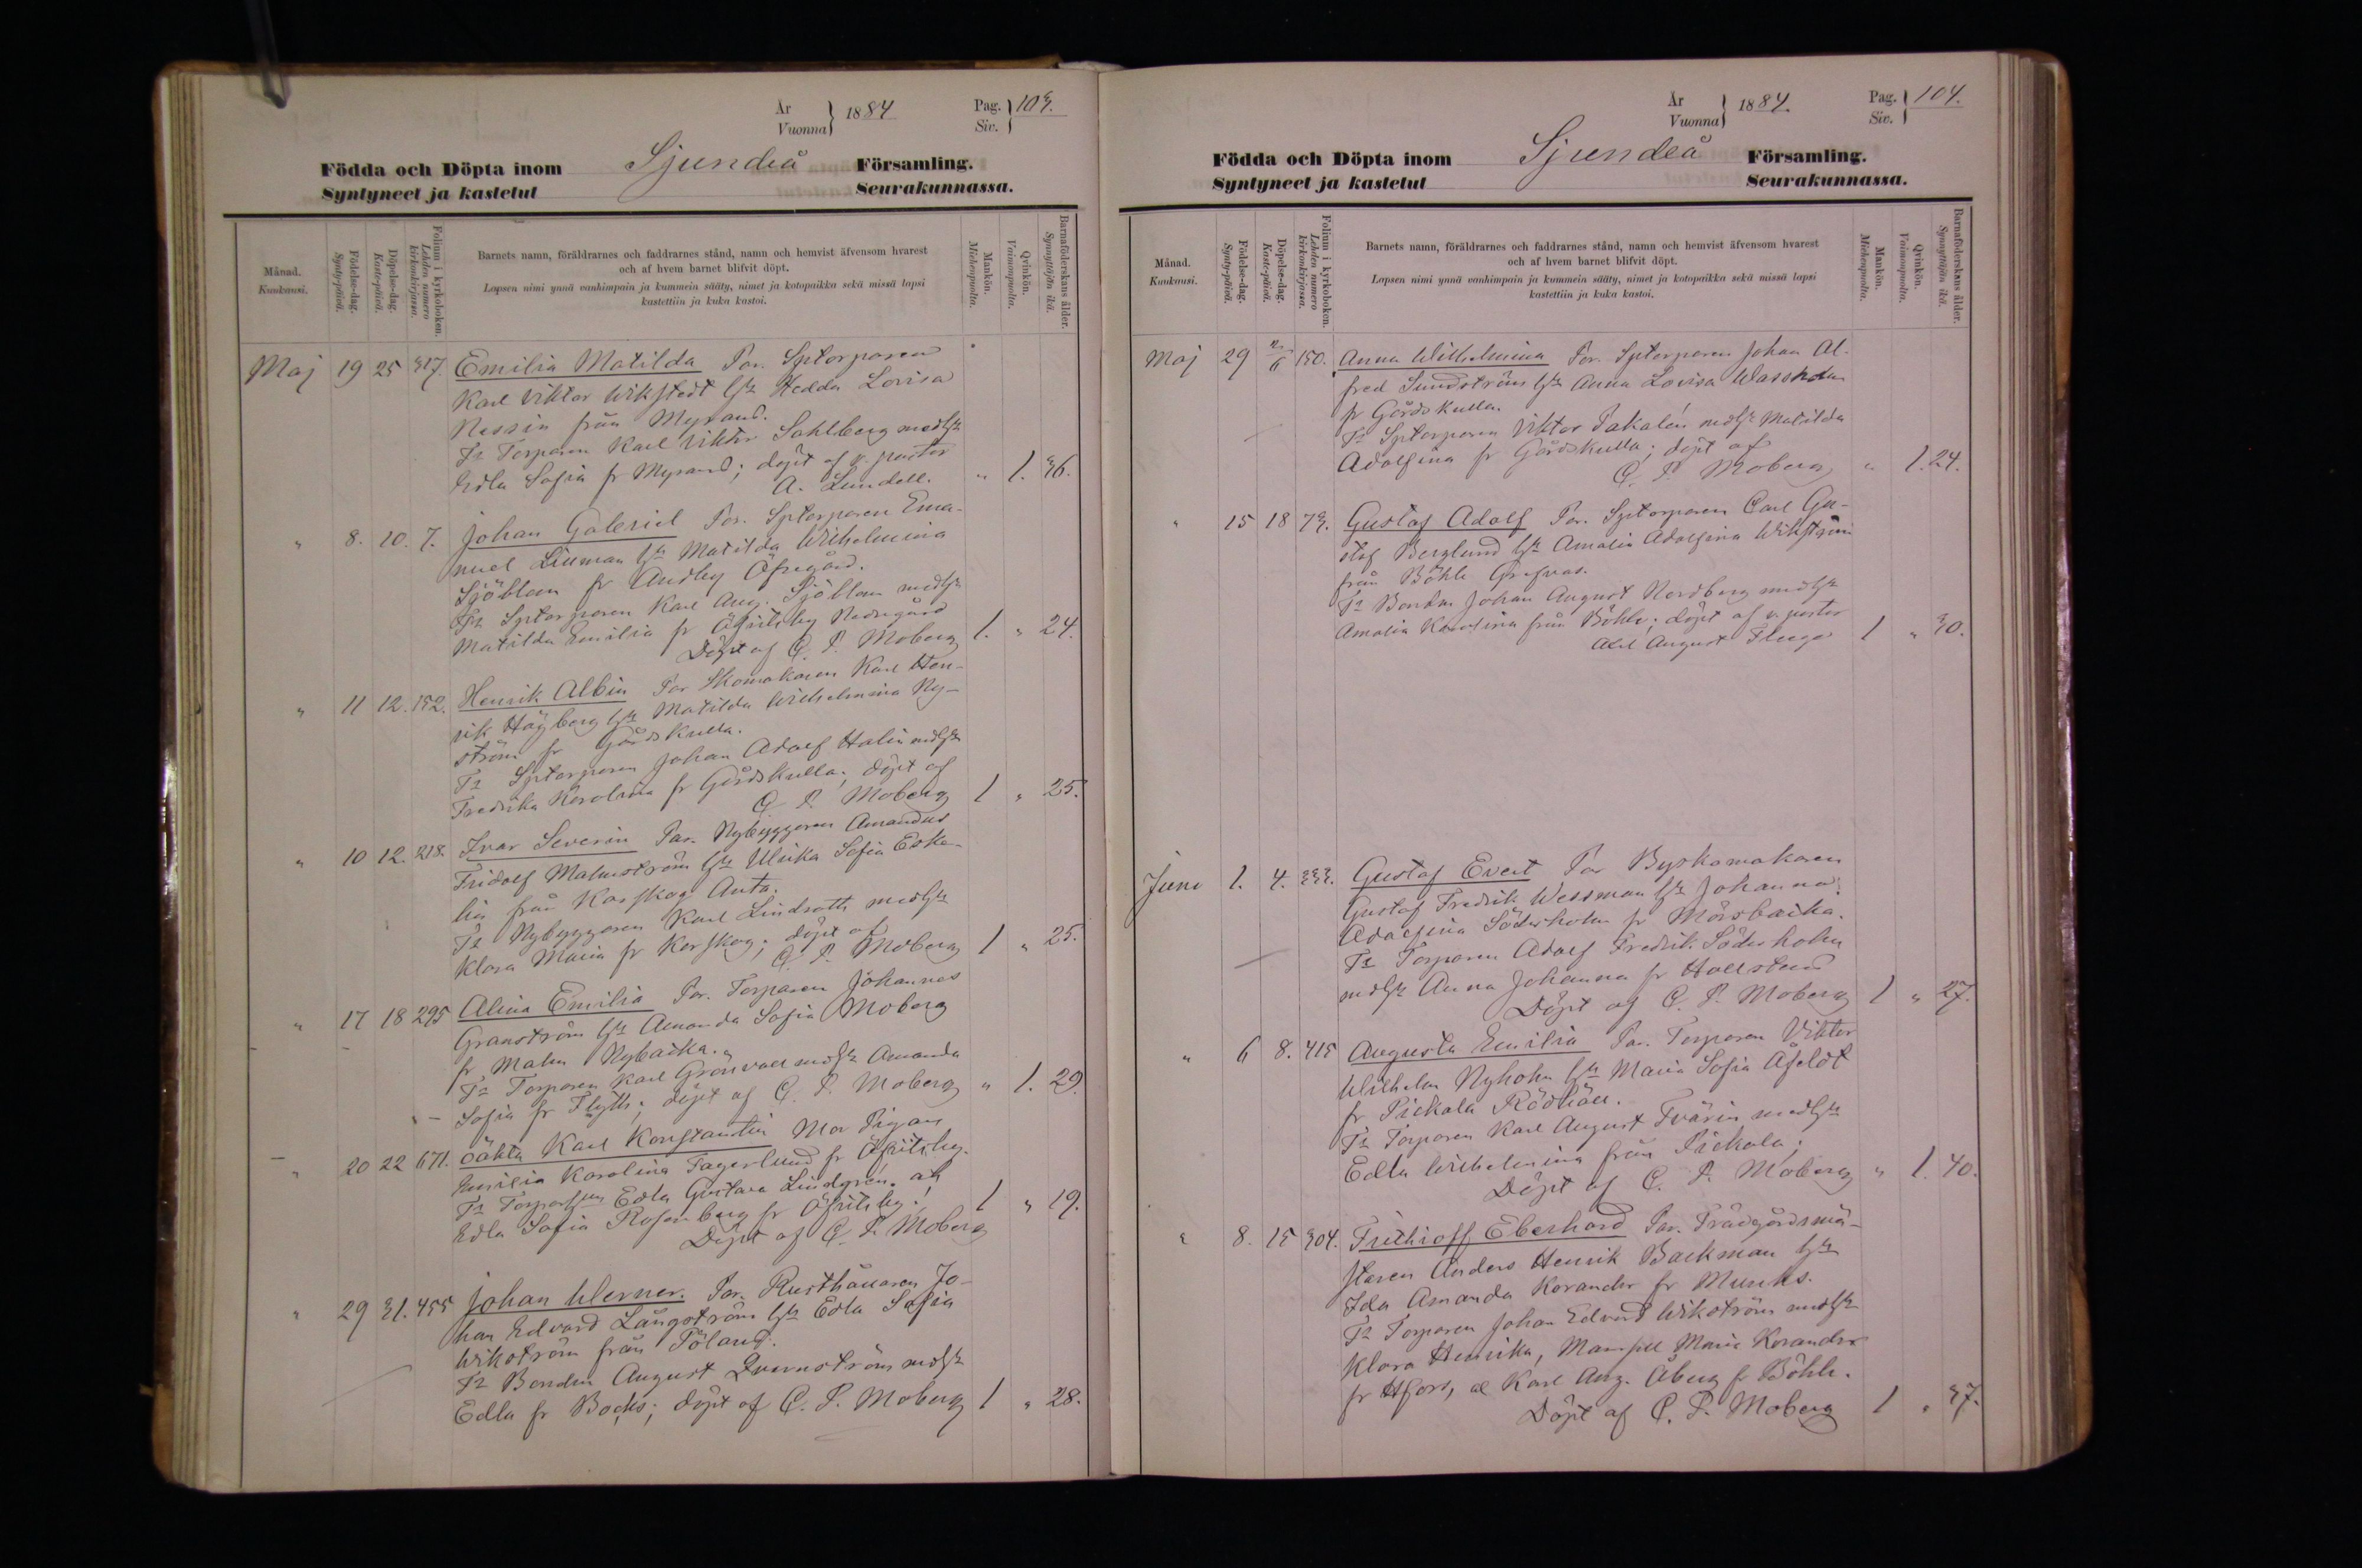 År
Vuonna } 1884 Pag.
Siv. } 103.
Födda och Döpta inom Sjundeå Församling.
Syntyneet ja kastetut Seurakunnassa.
Månad.
Kuukausi.
Födelse-dag.
Synty-päivä.
Döpelse-dag.
Kaste-päivä.
Folium i kyrkoboken.
Lehden numero kirkonkirjassa.
Barnets namn, föräldrarnes och faddrarnes stånd, namn och hemvist äfvensom hvarest
och af hvem barnet blifvit döpt.
Lapsen nimi ynnä vanhimpain ja kummein sääty, nimet ja kotopaikka sekä missä lapsi
kastettiin ja kuka kastoi.
Mankön.
Miehenpuolta.
Qvinkön.
Vaimonpuolta.
Barnaföderskans ålder.
Synnyttäjän ikä.
Maj 19 25 317. Emilia Matilda Par. Sptorparen
Karl Viktor Wikstedt hs Hedda Lovisa
Nessin från Myrans.
Ts Torparen Karl Viktor Sahlberg medhs
Edla Sofia fr Myrans; döpt af v. pastor
A. Lundell. " 1. 36.
" 8. 10. 7. Johan Gabriel Par. Sptorparen Ema-
nuel Linman hs Matilda Wilhelmina
Sjöblom fr Andby Öfvergård.
Ts Sptorparen Karl Aug. Sjöblom medhs
Matilda Emilia fr Öfvitsby Nedregård
Döpt af C. P. Moberg 1. " 24.
" 11 12. 152. Henrik Albin Par Skomakaren Karl Hen-
rik Högberg hs Matilda Wilhelmina Ny-
ström fr Gårdskulla.
Ts Sptorparen Johan Adolf Halin medhs
Fredrika Karolina fr Gårdskulla; döpt af
C. P. Moberg 1 " 25.
" 10 12. 218. Ivar Severin Par. Nybyggaren Amandus
Fridolf Malmström hs Ulrika Sofia Eske-
lin från Karskog Anta.
Ts Nybyggaren Karl Lindroth medhs
Klara Maria fr Karskog; döpt af
C. P. Moberg 1 " 25.
" 17 18 295 Alina Emilia Par. Torparen Johannes
Granström hs Amanda Sofia Moberg
fr Malm Nybacka.
Ts Torparen Karl Grönvall medhs Amanda
Sofia fr Flyths; döpt af C. P. Moberg " 1. 29.
" 20 22 671. Oäkta Karl Konstantin Mor Pigan
Emilia Karolina Fagerlund fr Öfvitsby.
Ts Edla Gustava Lindgren. och
Edla Sofia Rosenberg fr Öfvitsby;
Döpt af C. P. Moberg 1 " 19.
" 29 31. 455 Johan Werner. Par. Rusthållaren Jo-
han Edvard Långström hs Edla Sofia
Wikström från Pölans.
Ts Bonden August Qvarnström medhs
Edla fr Bocks; döpt af C. P. Moberg 1 " 28.
År
Vuonna } 1884. Pag.
Siv. } 104.
Födda och Döpta inom Sjundeå Församling.
Syntyneet ja kastetut Seurakunnassa.
Månad.
Kuukausi.
Födelse-dag.
Synty-päivä.
Döpelse-dag.
Kaste-päivä.
Folium i kyrkoboken.
Lehden numero kirkonkirjassa.
Barnets namn, föräldrarnes och faddrarnes stånd, namn och hemvist äfvensom hvarest
och af hvem barnet blifvit döpt.
Lapsen nimi ynnä vanhimpain ja kummein sääty, nimet ja kotopaikka sekä missä lapsi
kastettiin ja kuka kastoi.
Mankön.
Miehenpuolta.
Qvinkön.
Vaimonpuolta.
Barnaföderskans ålder.
Synnyttäjän ikä.
Maj 29 150. Anna Wilhelmina Par. Sptorparen Johan Al-
fred Sundström hs Anna Lovisa Wassholm
fr Gårdskulla.
Ts Sptorparen Viktor Takalén medhs Matilda
Adolfina fr Gårdskulla; döpt af
C. P. Moberg " 1. 24.
" 15 18 73. Gustaf Adolf Par. Sptorparen Carl Gu-
staf Berglund hs Amalia Adolfina Wikström
från Böhle Grefvas.
Ts Bonden Johan August Nordberg medhs
Amalia Karolina från Böhle; döpt af v. pastor
Axel August Fleege 1 " 30.
Juni 1. 4. 333. Gustaf Evert Par Byskomakaren
Gustaf Fredrik Wessman hs Johanna
Adolfina Söderholm fr Mörsbacka.
Ts Torparen Adolf Fredrik Söderholm
medhs Anna Johanna fr Hollstens
Döpt af C. P. Moberg 1 " 27.
" 6 8. 415 Augusta Emilia Par. Torparen Viktor
Wilhelm Nyholm hs Maria Sofia Åfeldt
fr Pickala Rödhäll.
Ts Torparen Karl August Tvärin medhs
Edla Wilhelmina från Pickala;
Döpt af C. P. Moberg " 1. 40.
" 8. 15 304. Frithioff Eberhard Par. Trädgårdsmä-
staren Anders Henrik Backman hs
Ida Amanda Korander fr Munks.
Ts Torparen Johan Edvard Wikström medhs
Klara Henrika, Mamsell Maria Korander
fr Hfors, Karl Aug. Åberg fr Böhle.
Döpt af C. P. Moberg 1 " 37.